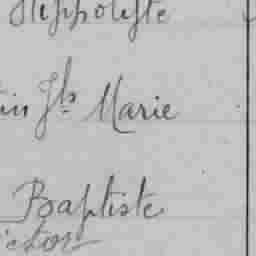 Hippolyte
in Jh Marie
Baptiste
ictor